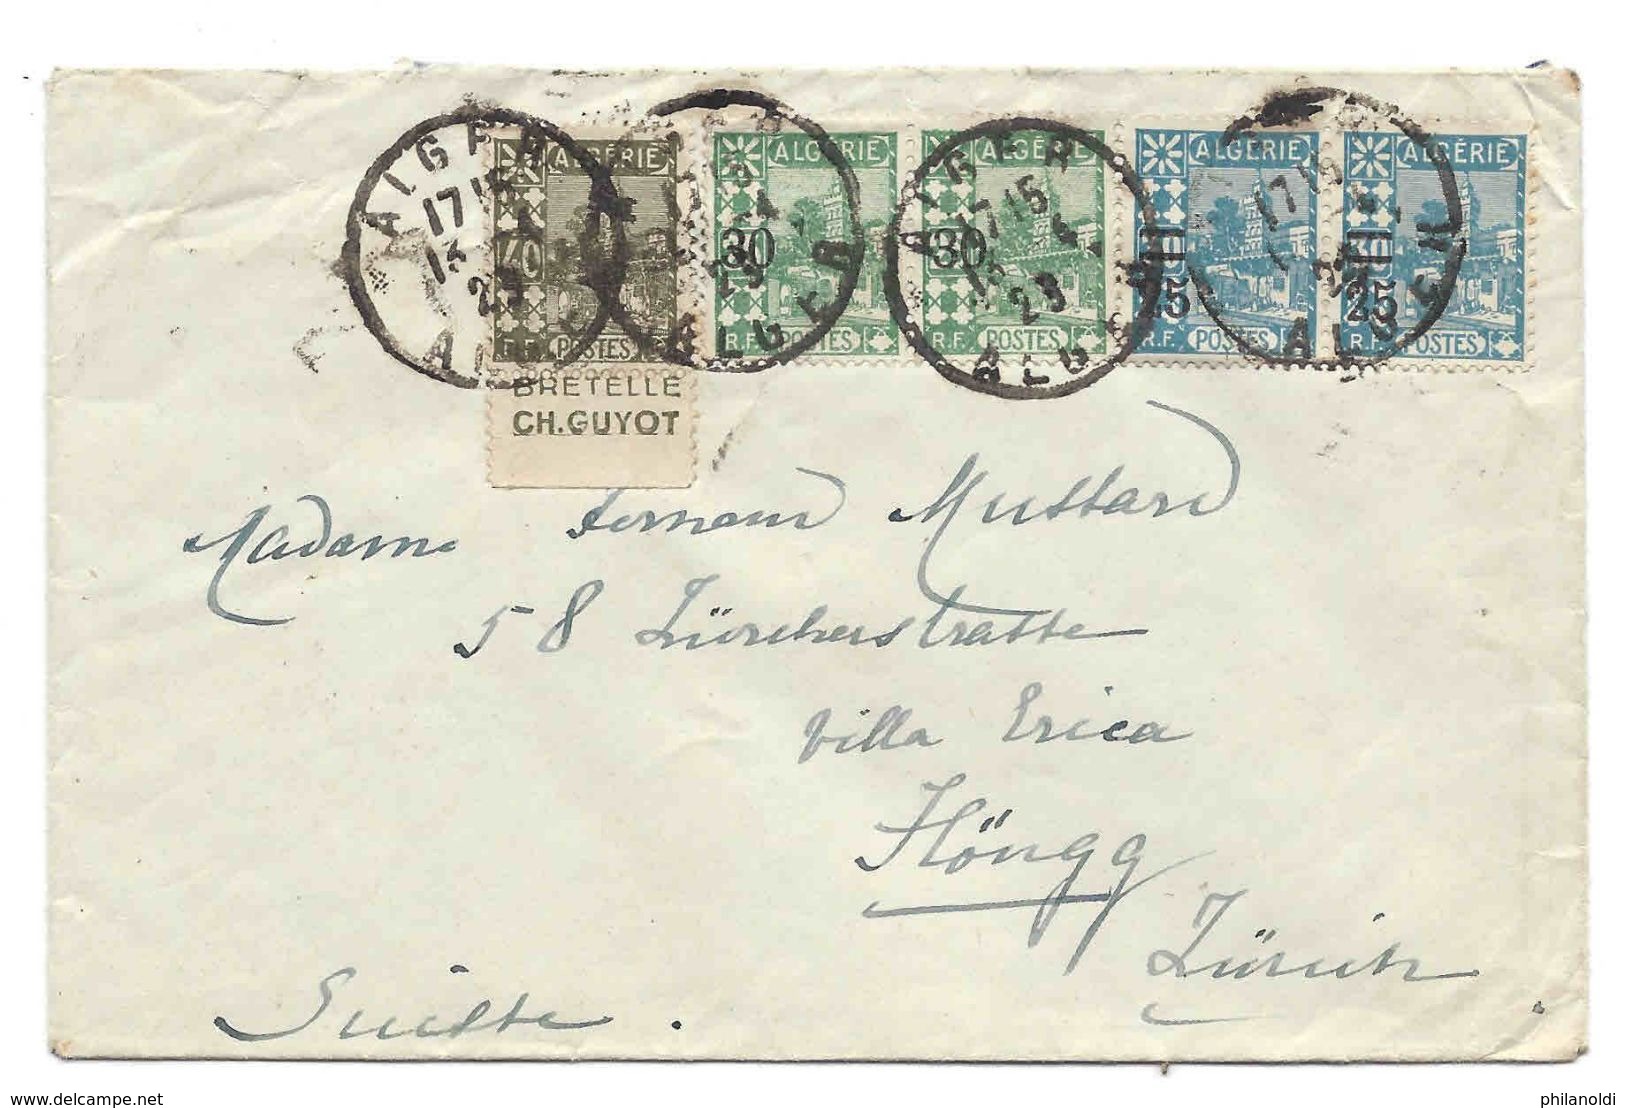 ALGER
17 15
ALGER
ALGÉRIE
40
R.F. POSTES
BRETELLE
CH.GUYOT
ALGÉRIE
30
R.F. POSTES
ALGÉRIE
30
R.F. POSTES
ALGÉRIE
25
R.F. POSTES
ALGÉRIE
25
R.F. POSTES
Madame Mustard
58 Zürcherstrasse
Villa Erica
Höngg
Zürich
Suisse.
www.delcampe.net
philanoldi